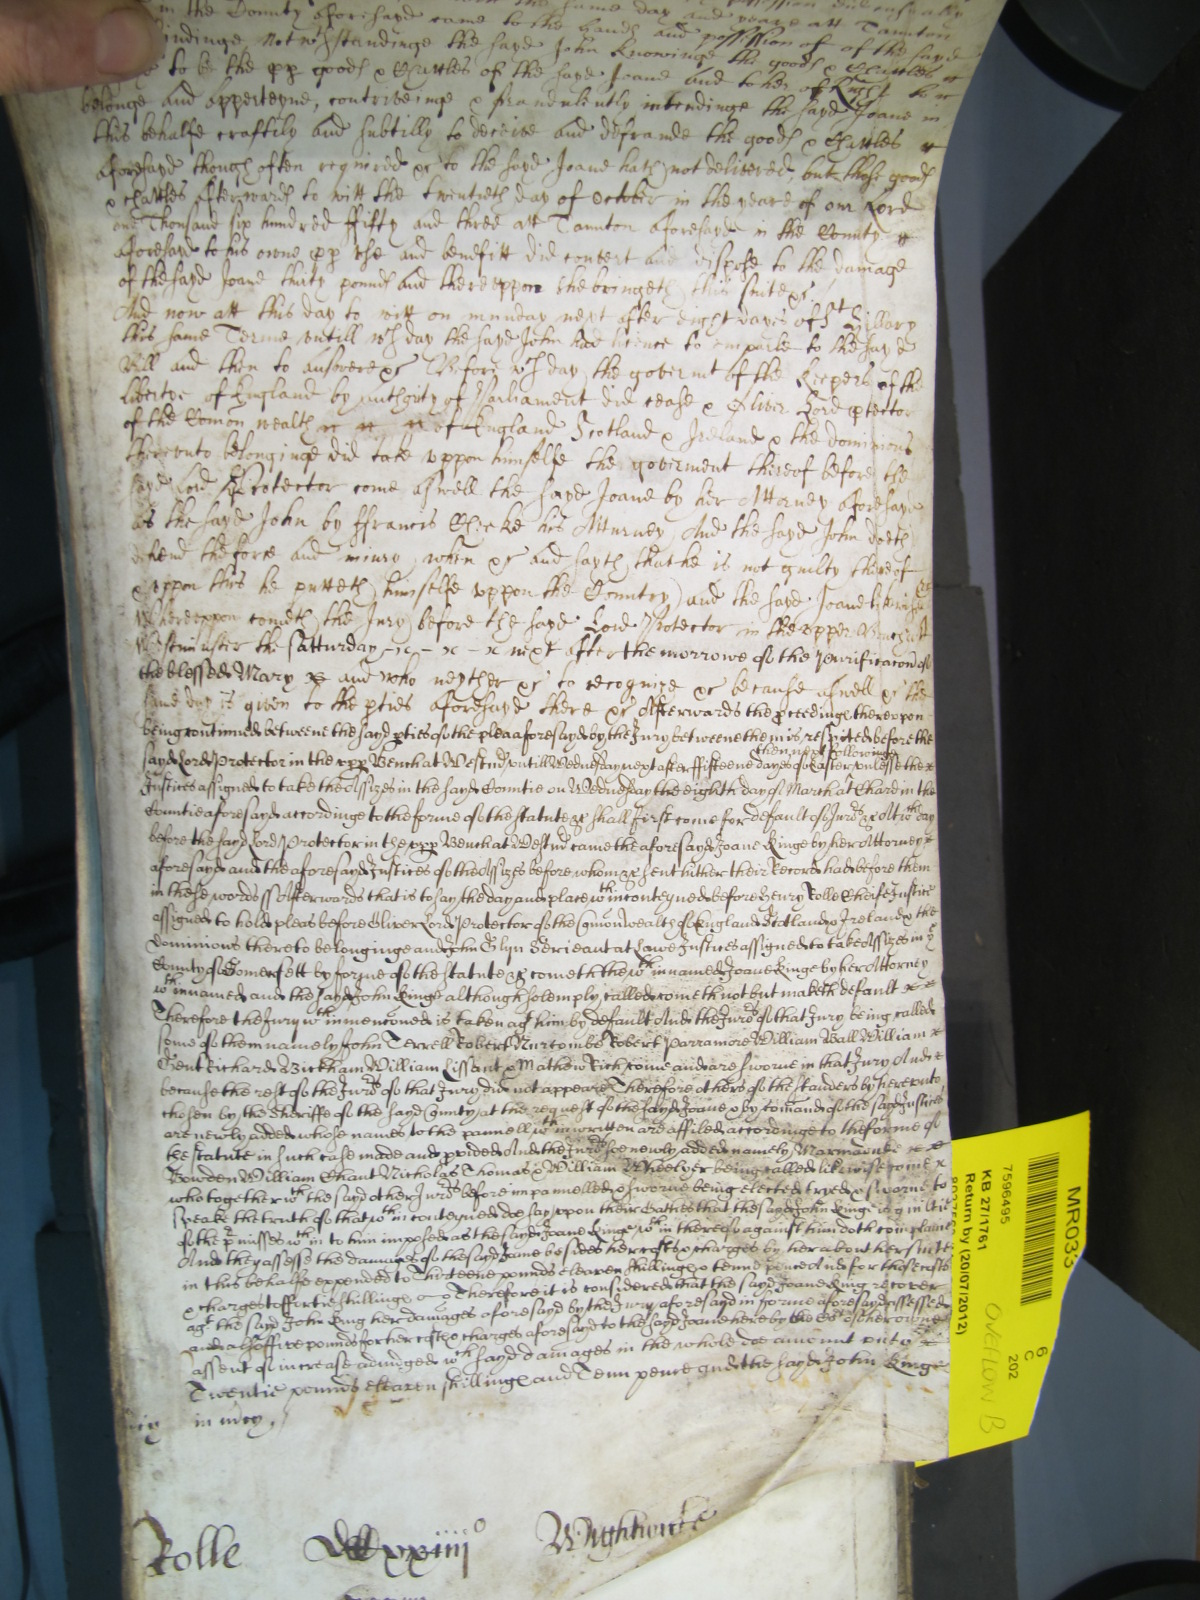 in the County aforesayd came to the hands and possession of of the sayd
findinge, Notwthstandinge the sayd John knowinge the goods & Chattles
to be the pp goods & Chattles of the sayd Joane and to her of Right to
belonge and apperteyne, contriveinge & fraudulently intendinge the sayd Joane in
this behalfe craftily and subtilly to deceive and defraude the goods & Chattles
aforesayd though often required &c to the sayd Joane hath not delivered, but those goods
& chattles Afterwards to witt the twentieth day of October in the yeare of our Lord
one Thousand six hundred ffifty and three att Taunton aforesayd in the County
aforesayd to his owne pp use and benefitt did convert and dispose to the damage
of the sayd Joane thirty pounds and thereuppon she bringeth this suite &c
And now att this day to witt on munday next after eight dayes of St Hillary
this same Terme untill wch day the sayd John had licence to imparle to the sayd
Bill and then to answere &c Before wch day the governt of the Keepers of the
libertye of England by authority of Parliament did cease & Oliver Lord ptector
of the Comon wealth of England Scotland & Ireland & the dominions
thereunto belonginge did take uppon himselfe the goverment thereof before the
sayd Lord Protector come aswell the sayd Joane by her Attorney aforesayd
as the sayd John by ffrancis Cheeke his Atturney, And the sayd John doeth
defend the force and iniury when &c and sayth that he is not guilty thereof
& uppon this he putteth himselfe uppon the Country, and the sayd Joane likewise &c
Whereuppon cometh the Jury before the sayd Lord Protector in the upper Bench att
Westminster the Satturday next after the morrowe of the Purificacon of
the blessed Mary &c and who neyther &c to recognize &c because aswell &c the
same day is given to the pties aforesayd there &c Afterwards the pceedings thereupon
being continued betweene the sayd pties of the plea aforesayd by the Jury betweene them is respited before the
then next followinge
sayd Lord Protector in the upp Bench at Westmr untill Wednesday next after ffifteene dayes of Easter unlesse the
Justices assigned to take the Assizes in the sayd Countie on Wednesday the eighth day of March at Chard in the
Countie aforesayd accordinge to the forme of the statute &c shall first come for default of Jurors &c At wch day
before the sayd Lord Protector in the upp Bench at Westmr came the aforesayd Joane Kinge by her Attorney
aforesayd and the aforesayd Justices of the Assizes before whom &c sent hither their Record had before them
in these words ss Afterwards that is to say the day and place wthin conteyned before Henry Rolle Cheife Justice
assigned to hold pleas before Oliver Lord Protector of the Comonwealth of England Scotland & Ireland & the
dominions thereto belonginge and John Glyn Serieant at Lawe Justices assigned to take Assizes in ye
County of Somersett by forme of the statute &c cometh the wthin named Joane Kinge by her Attorney
wthin named and the sayd John Kinge although solemply called cometh not but maketh default
Therefore the Jury wthin menconed is taken agt him by default And the Jurors of that Jury being called
some of them namely John Terrell Robert Nurcombe Robert Parramore William Wall William
Gent Richard Bickham William Lissant & Mathew Rich come and are sworne in that Jury And
because the rest of the Jurors of that Jury did not appeare Therefore others of the standers by hereunto
chosen by the Sheriffe of the sayd County at the request of the sayd Joane & by comand of the sayd Justices
are newly added whose names to the pannell wthin written are affiled accordinge to the forme of
the statute in such case made and provided And the Jurors soe newly added namely Marmaduke
Bowden William Chant Nicholas Thomas & William Wheelyer being called likewise come
who together wth the sayd other Jurors before impannelled & sworne being elected tryed & sworne to
speake the truth of that wthin conteyned doe say upon their Oathes that the sayd John Kinge is guiltie
of the pmisses wthin to him imposed as the sayd Joane Kinge wthin thereof against him doth complaine
And they assesse the damages of the sayd Joane besides her costs & charges by her about her suite
in this behalfe expended to Thirteene pounds eleaven shillings & tenne pence And for those costs
& charges to ffortie shillings Therefore it is considered that the sayd Joane King recover
agt the sayd John King her damages aforesayd by the Jury aforesayd in forme aforesayd assessed
and also ffive pounds for her costs & charges aforesayd to the sayd Joane here by the Cort of her owne
assent of increase adiudged wch sayd damages in the whole doe amount unto
Twentie pounds eleaven shillings and Tenn pence And the sayd John Kinge
in mcy
Rolle
Wightwicke
MR033
7596495
KB 27/1761
Return by (20/07/2012)
6
C
202
OVERFLOW B